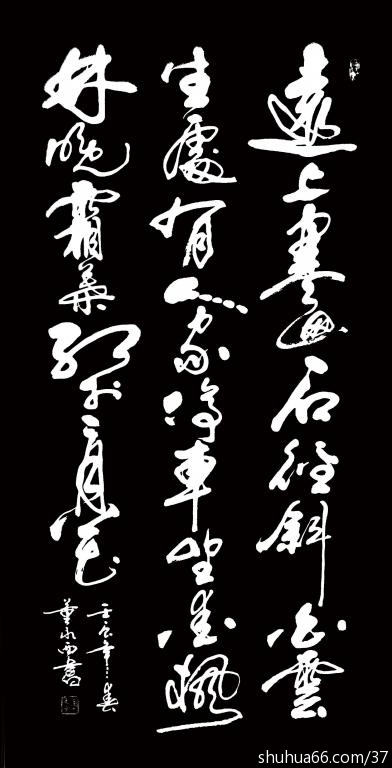 遠上寒山石徑斜白雲
生處有人家停車坐愛楓
林晚霜葉紅於二月花
壬辰年春
董西書
shuhua66.com/37